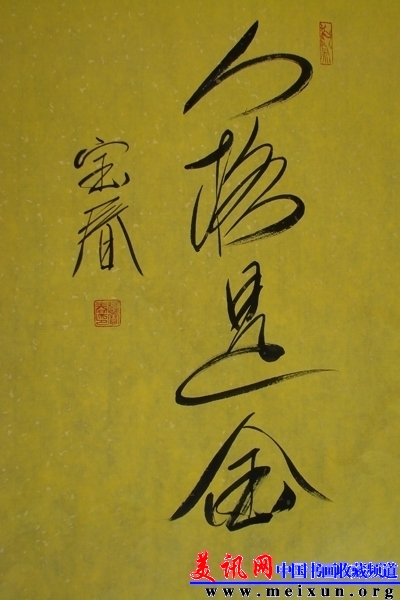 人格是金
宝春
美讯网 中国书画收藏频道
www.meixun.org